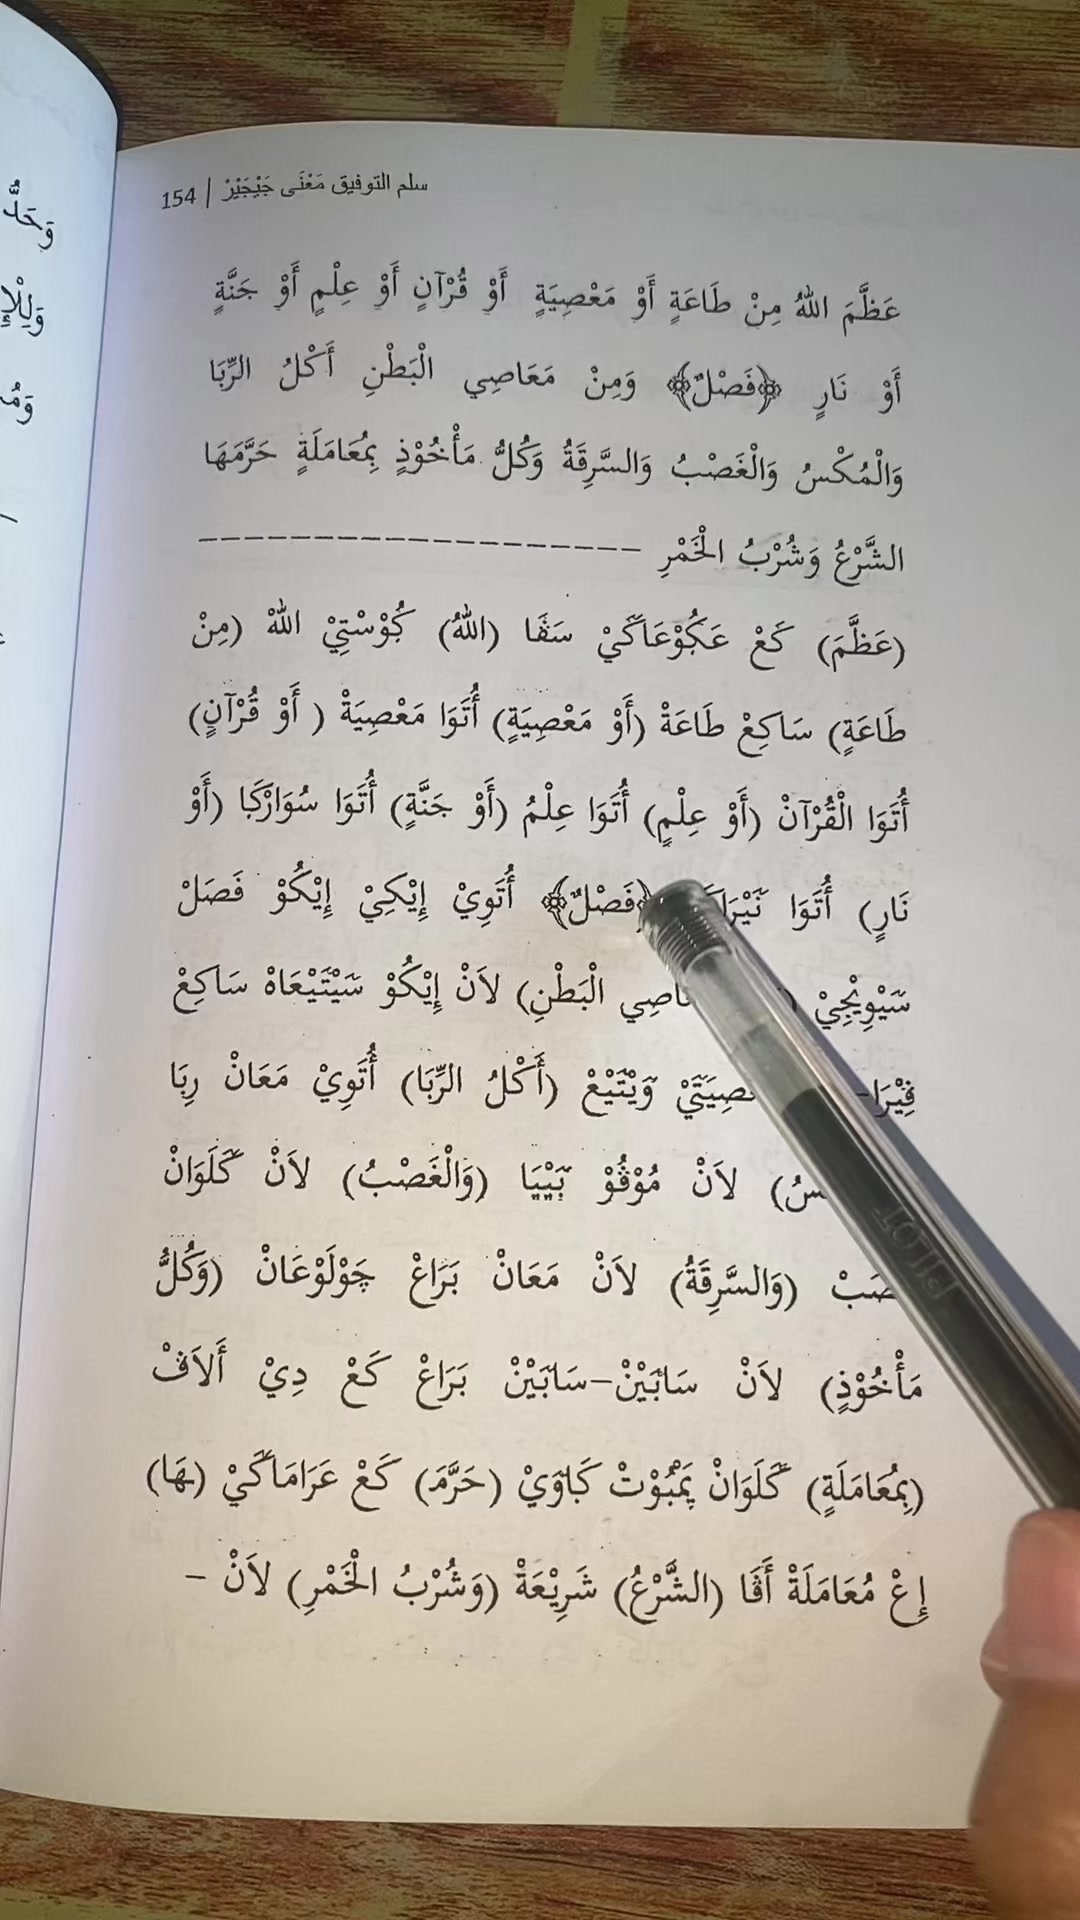 سلم التوفيق مَعْنَى جَيْجَيْرْ | 154
عَظَّمَ اللهُ مِنْ طَاعَةٍ أَوْ مَعْصِيَةٍ أَوْ قُرْآنٍ أَوْ عِلْمٍ أَوْ جَنَّةٍ
أَوْ نَارٍ ﴿فَصْلٌ﴾ وَمِنْ مَعَاصِي الْبَطْنِ أَكْلُ الرِّبَا
وَالْمُكْسُ وَالْغَصْبُ وَالسَّرِقَةُ وَكُلُّ مَأْخُوْذٍ بِمُعَامَلَةٍ حَرَّمَهَا
الشَّرْعُ وَشُرْبُ الْخَمْرِ
(عَظَّمَ) كَعْ عَݢُوْعَاكَيْ سَڤَا (اللهُ) ݢُوْسْتِيْ اللهْ (مِنْ
طَاعَةٍ) سَاكِعْ طَاعَةْ (أَوْ مَعْصِيَةٍ) أُتَوَا مَعْصِيَةْ (أَوْ قُرْآنٍ)
أُتَوَا الْقُرْآنْ (أَوْ عِلْمٍ) أُتَوَا عِلْمُ (أَوْ جَنَّةٍ) أُتَوَا سُوَارْݢَا (أَوْ
نَارٍ) أُتَوَا ﴿فَصْلٌ﴾ أُتَوِيْ إِيْكِيْ إِيْكُوْ فَصَلْ
سَيْوِيْجِيْ الْبَطْنِ) لاَنْ إِيْكُوْ سَيْتَيْعَاهْ سَاكِعْ
ڤِيْرَا- وَيْتَيْعْ (أَكْلُ الرِّبَا) أُتَوِيْ مَعَانْ رِبَا
لاَنْ مُوْڤُوْ بَيْيَا (وَالْغَصْبُ) لاَنْ كَلَوَانْ
(وَالسَّرِقَةُ) لاَنْ مَعَانْ بَرَاعْ چَوْلَوْعَانْ (وَكُلُّ
مَأْخُوْذٍ) لاَنْ سَابَيْنْ-سَابَيْنْ بَرَاعْ كَعْ دِيْ أَلاَڤْ
(بِمُعَامَلَةٍ) كَلَوَانْ يَمْبُوْتْ ݢَاوَيْ (حَرَّمَ) كَعْ عَرَامَاكَيْ (هَا)
إِعْ مُعَامَلَةْ أَڤَا (الشَّرْعُ) شَرِيْعَةْ (وَشُرْبُ الْخَمْرِ) لاَنْ -
PILOT